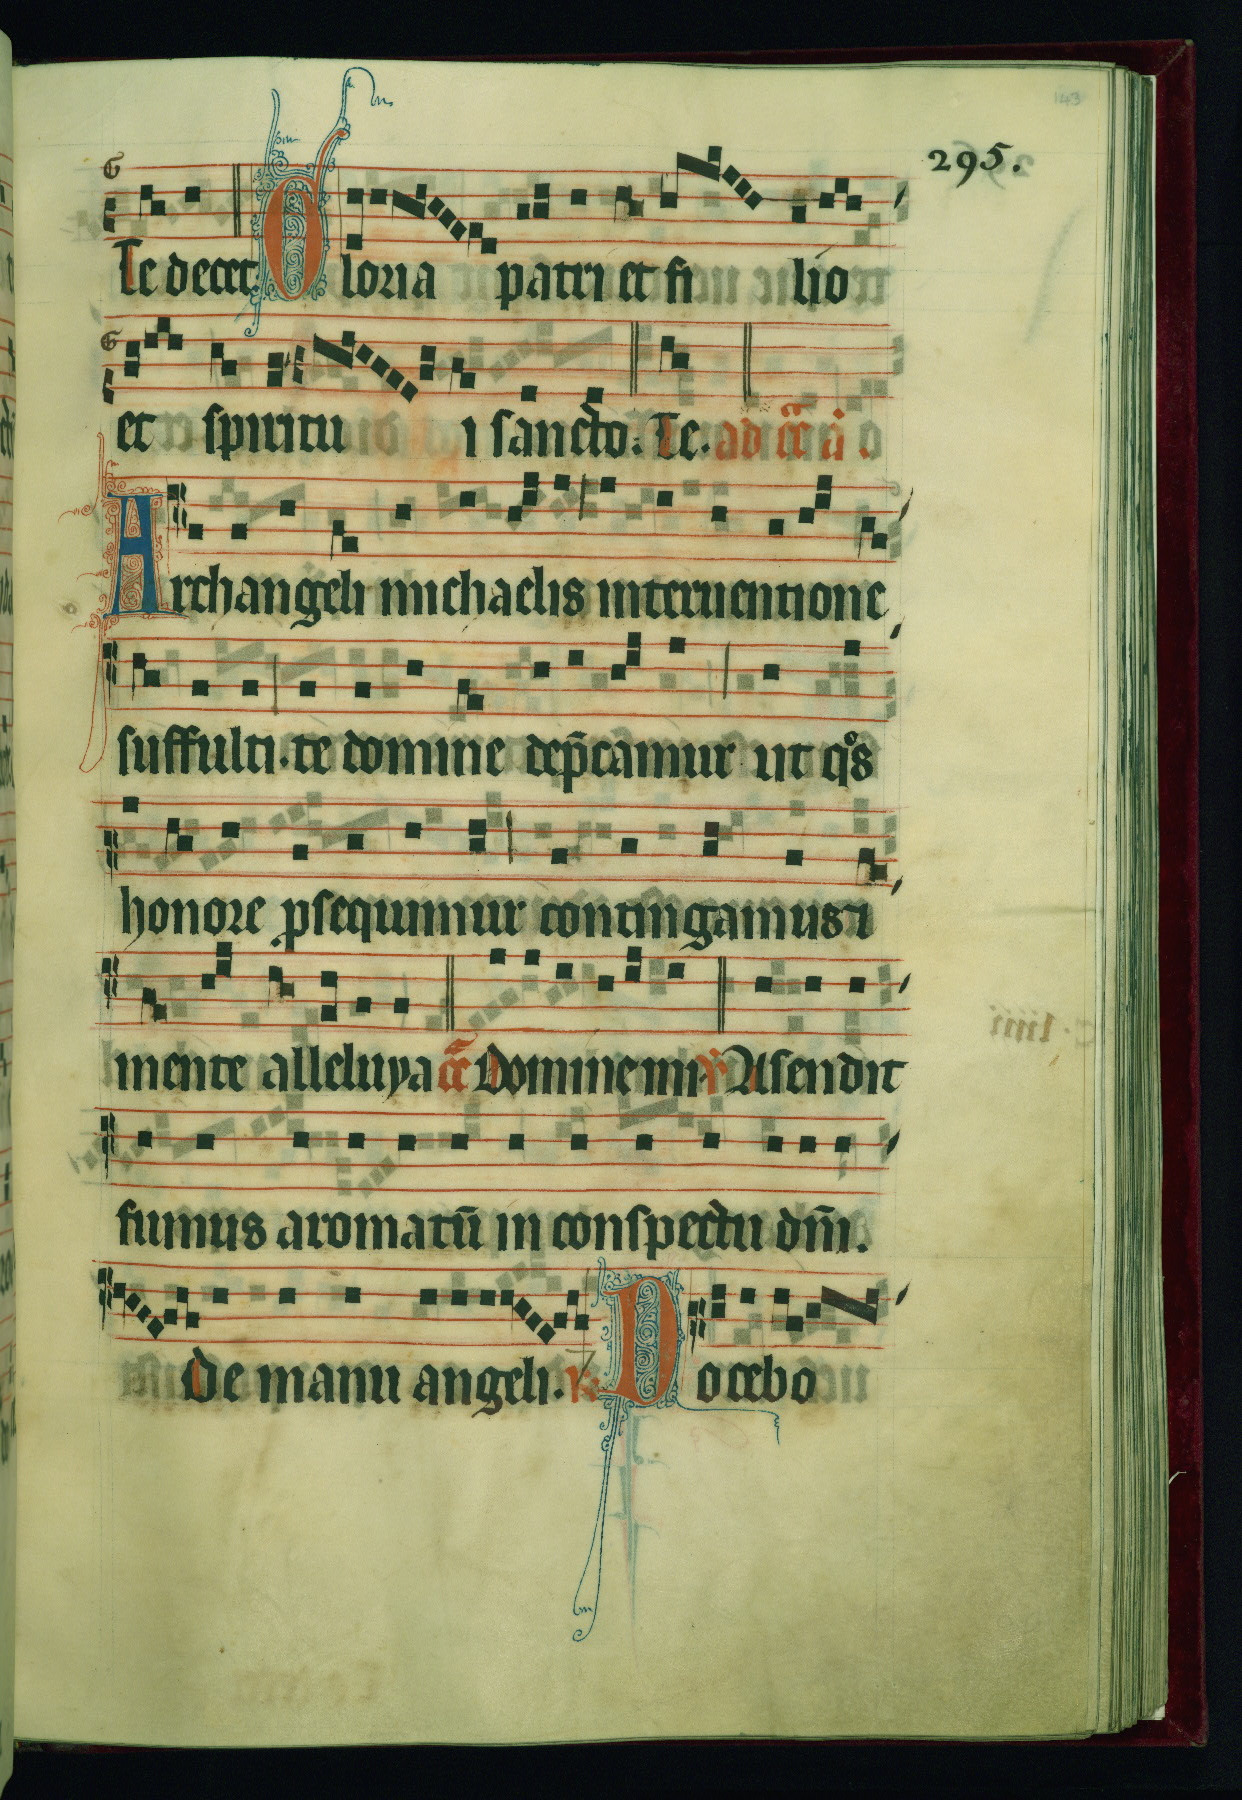 143
295.
Te decet Gloria patri et fi lio
et spiritu i sancto. Te. ad cc̄ ā
Archangeli michaelis interuentione
suffulti. te domine dep̄camur ut qͦs
honore ꝑsequimur contingamus ⁊
mente alleluya cc̄ Domine mi. Asendit
fumus aromatū in conspectu dn̄i.
De manu angeli. ℟ Docebo